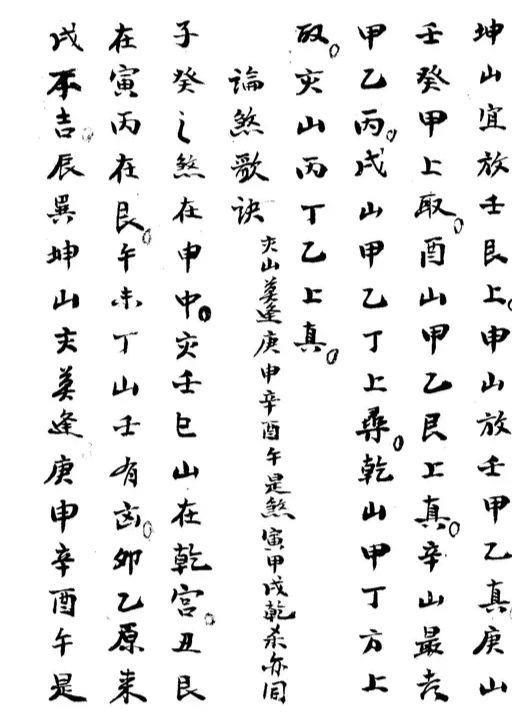 坤山宜放壬艮上。申山放壬甲乙真。庚山
壬癸甲上取。酉山甲乙艮上真。辛山最吉
甲乙丙。戌山甲乙丁上尋。乾山甲丁方上
取。亥山丙丁乙上真。
論煞歌訣
亥山莫逢庚申辛酉午是煞寅甲戌乾杀亦同
子癸之煞在申中。亥壬巳山在乾宮。丑艮
在寅丙在艮。午未丁山壬有凶。卯乙原来
戌不吉。辰巽坤山亥莫逢庚申辛酉午是